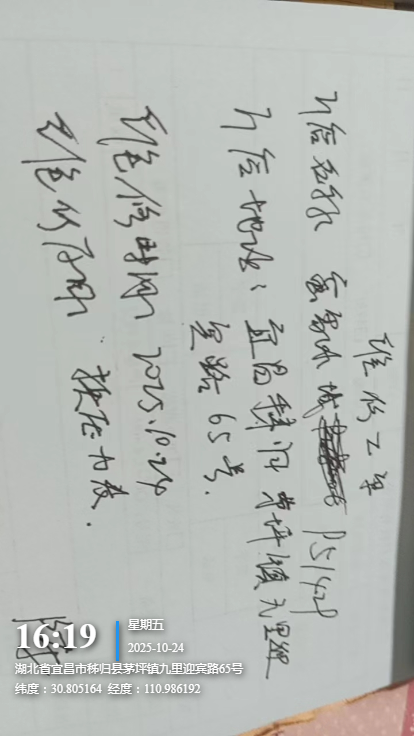 维修工单
门店名称 宜昌 城 P5142P
门店地址：宜昌秭归 茅坪镇九里迎
宾路65号.
维修时间 2025.10.24
维修
16:19
星期五
2025-10-24
湖北省宜昌市秭归县茅坪镇九里迎宾路65号
纬度：30.805164 经度：110.986192